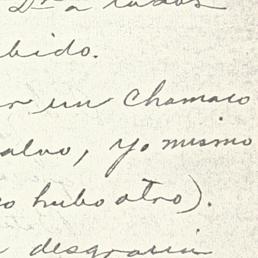 Dn a todos
bido.
er un chamaco
alvo, yo mismo
o hubo otro).
desgracia